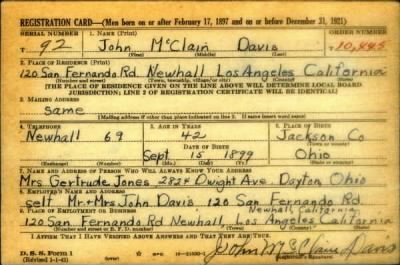 REGISTRATION CARD—(Men born on or after February 17, 1897 and on or before December 31, 1921)
SERIAL NUMBER 1. NAME (Print) ORDER NUMBER
92 John McClain Davis 10,445
(First) (Middle) (Last)
2. PLACE OF RESIDENCE (Print)
120 San Fernando Rd. Newhall, Los Angeles California
(Number and street) (Town, township, village or city) (County) (State)
(THE PLACE OF RESIDENCE GIVEN ON THE LINE ABOVE WILL DETERMINE LOCAL BOARD
JURISDICTION; LINE 2 OF REGISTRATION CERTIFICATE WILL BE IDENTICAL)
3. MAILING ADDRESS
Same
(Mailing address if other than place indicated on line 2. If same insert word same)
4. TELEPHONE 5. AGE IN YEARS 6. PLACE OF BIRTH
Newhall 69 42 Jackson Co
DATE OF BIRTH (Town or county)
Sept 15 1899 Ohio
(Exchange) (Number) (Mo.) (Day) (Yr.) (State or country)
7. NAME AND ADDRESS OF PERSON WHO WILL ALWAYS KNOW YOUR ADDRESS
Mrs Gertrude Jones 2824 Dwight Ave Dayton Ohio
8. EMPLOYER'S NAME AND ADDRESS
self Mr + Mrs John Davis. 120 San Fernando Rd
Newhall, California
9. PLACE OF EMPLOYMENT OR BUSINESS
120 San Fernando Rd Newhall, Los Angeles California
(Number and street or R. F. D. number) (Town) (County) (State)
I AFFIRM THAT I HAVE VERIFIED ABOVE ANSWERS AND THAT THEY ARE TRUE.
D. S. S. Form 1
(Revised 1-1-42) John McClain Davis
(Registrant's signature)